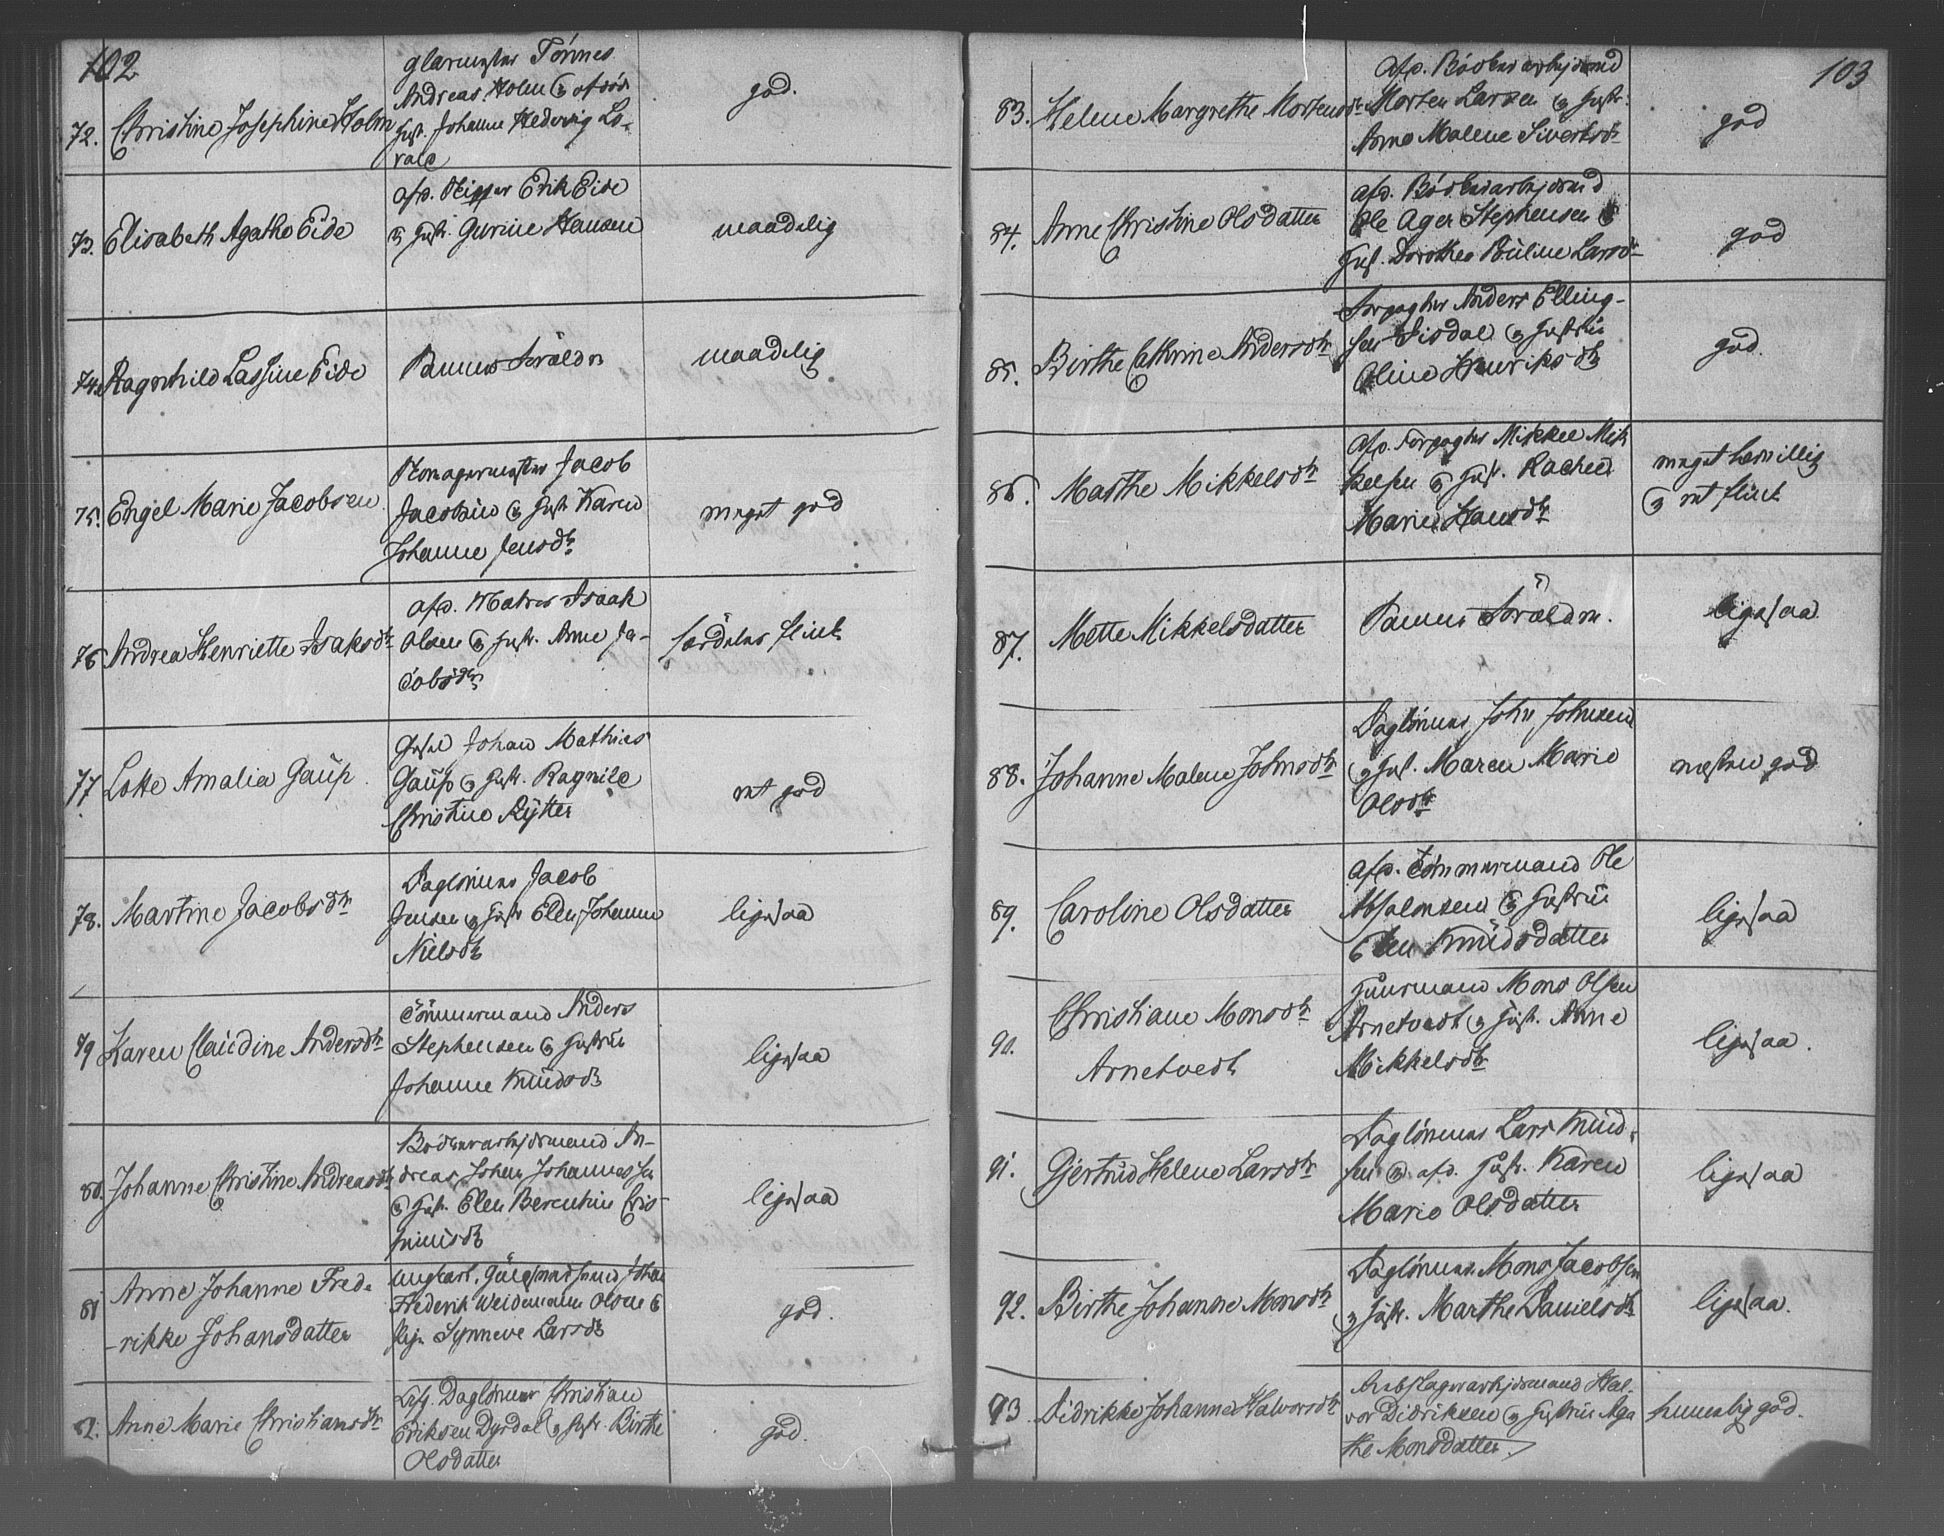 102
72. Christine Josephine Holm
glarmester Tönnes
Andreas Holm & afdöd
Hust. Johanne Hedevig Lo-
rals
god.
73. Elisabeth Agathe Eide
afd. Skipper Erik Eide
& Hustr. Gurine Hansen
maadelig
74. Ragnhild Lassine Eide
Samme Foræld.
maadelig
75. Engel Marie Jacobsen
Skomagermester Jacob
Jacobsen & Hust. Karen
Johanne Jensdtr
meget god
76. Andrea Henriette Isaksdtr
afd. Matros Isaak
Olsen & Hustr. Anne Ja-
cobsdtr.
særdeles flink
77. Lotte Amalia Gaup
Johan Mathias
Gaup & Hustr. Ragnile
Christine Rytter
ret god
78. Martine Jacobsdtr
Daglönner Jacob
Jensen & Hustr Elen Johanne
Nielsdtr
ligesaa
79. Karen Claudine Andersdtr
Tömmermand Anders
Stephensen & Hustrue
Johanne Knudsdtr
ligesaa
80. Johanne Christine Andreasdtr
Bödkerarbejdsmand An-
dreas Johan Johannessen
& Hustr. Elen Berentine
ligesaa
81. Anne Johanne Frede-
-rikke Johansdatter
ungkarl. Johan
Frederik Weidemann Olsen &
Pige Synneve Larsdtr
god.
82. Anne Marie Christiansdtr
Daglönner Christian
Eriksen Dyrdal & Hustr Birthe
Olsdatter
god.
103
83. Helene Margrethe Mortensdtr
Afd. Bödkerarbejdsmd
Morten Larsen & Hustr.
Anne Malene Sivertsdr
god
84. Anne Christine Olsdatter
afd. Bödkerarbejdsmd
Ole Ager Stephensen &
Hust. Dorothea Larsdr
god
85. Birthe Cathrine Andersdtr
Forpagter Anders Elling-
sen Sisdal & Hustrue
Oline Henriksdtr
god.
86. Marthe Mikkelsdtr
Afd. Forpagter Mikkel Mik
kelsen & Hust. Rachel
Marie Hansdtr
meget lærvillig
& ret flink
87. Mette Mikkelsdatter
Samme Forældre.
ligesaa
88. Johanne Malene Johnsdtr
Daglönner John Johnsen
& Hust. Maren Marie
Olsdtr
næsten god
89. Caroline Olsdatter
afd. Tömmermand Ole
Absalonsen & Hustrue
Elen Knudsdatter
ligesaa
90. Christiane Monsdtr
Arnetvedt
Huusmand Mons Olsen
Arnetvedt & Hust. Anne
Mikkelsdtr
ligesaa.
91. Gjertrud Helene Larsdtr
Daglönner Lars Knud-
sen & afd. Hustr. Karen
Marie Olsdatter
ligesaa
92. Birthe Johanne Monsdtr
Daglönner Mons Jacobsen
& Hustr. Marthe Danielsdtr
ligesaa.
93. Didrikke Johanne Halvorsdtr
Rebslagerarbejdsmand Hal-
vor Didriksen & Hustrue Aga
the Monsdatter
temmelig god.